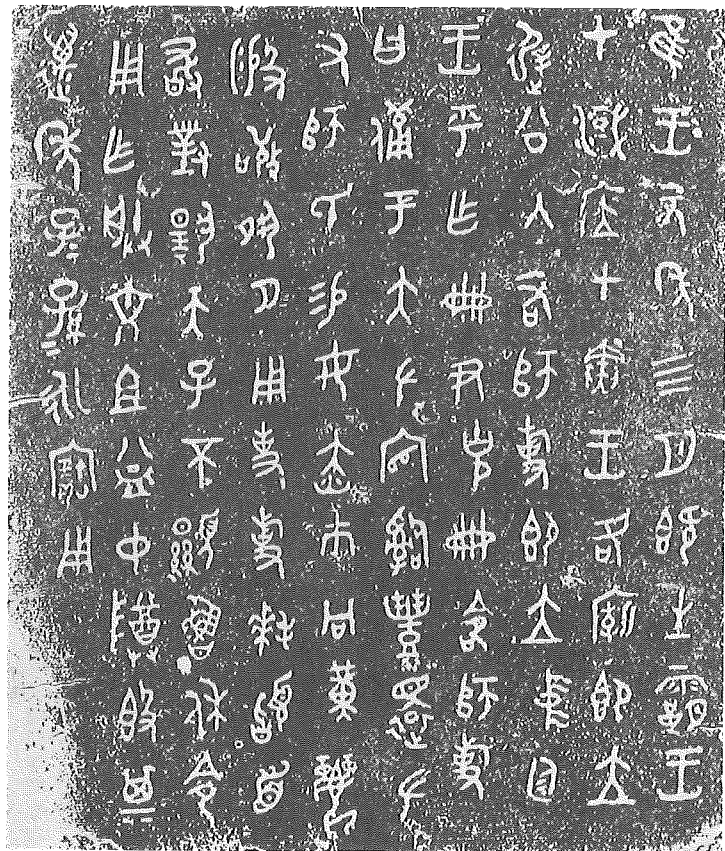 隹王元年四月既生霸王
才減应甲寅王各廟即立
遲公入右師旋即立中廷
王乎乍冊尹克冊命師旋
曰備于大左官𤔲豐還左
又師氏易女赤巿冋黃麗
般敬夙夕用事旋拜𩒨首
敢對揚天子不顯魯休令
用乍朕文且益中尊簋其
萬年子=孫=永寶用